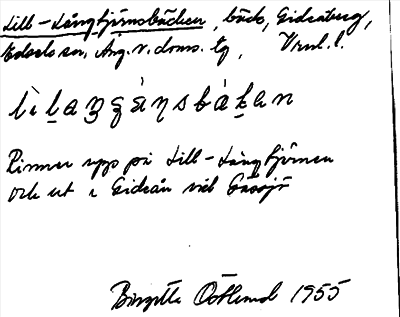 Lill-Långtjärnsbäcken, bäck, Gideåberg,
Edsele sn, Ång. v. doms. tg, Vrnl. l.
lìlaŋgáṇsbàkan
Rinner upp på Lill-Långtjärnen
och ut i Gideån vid Gåssjö
Birgitta Östlund 1955